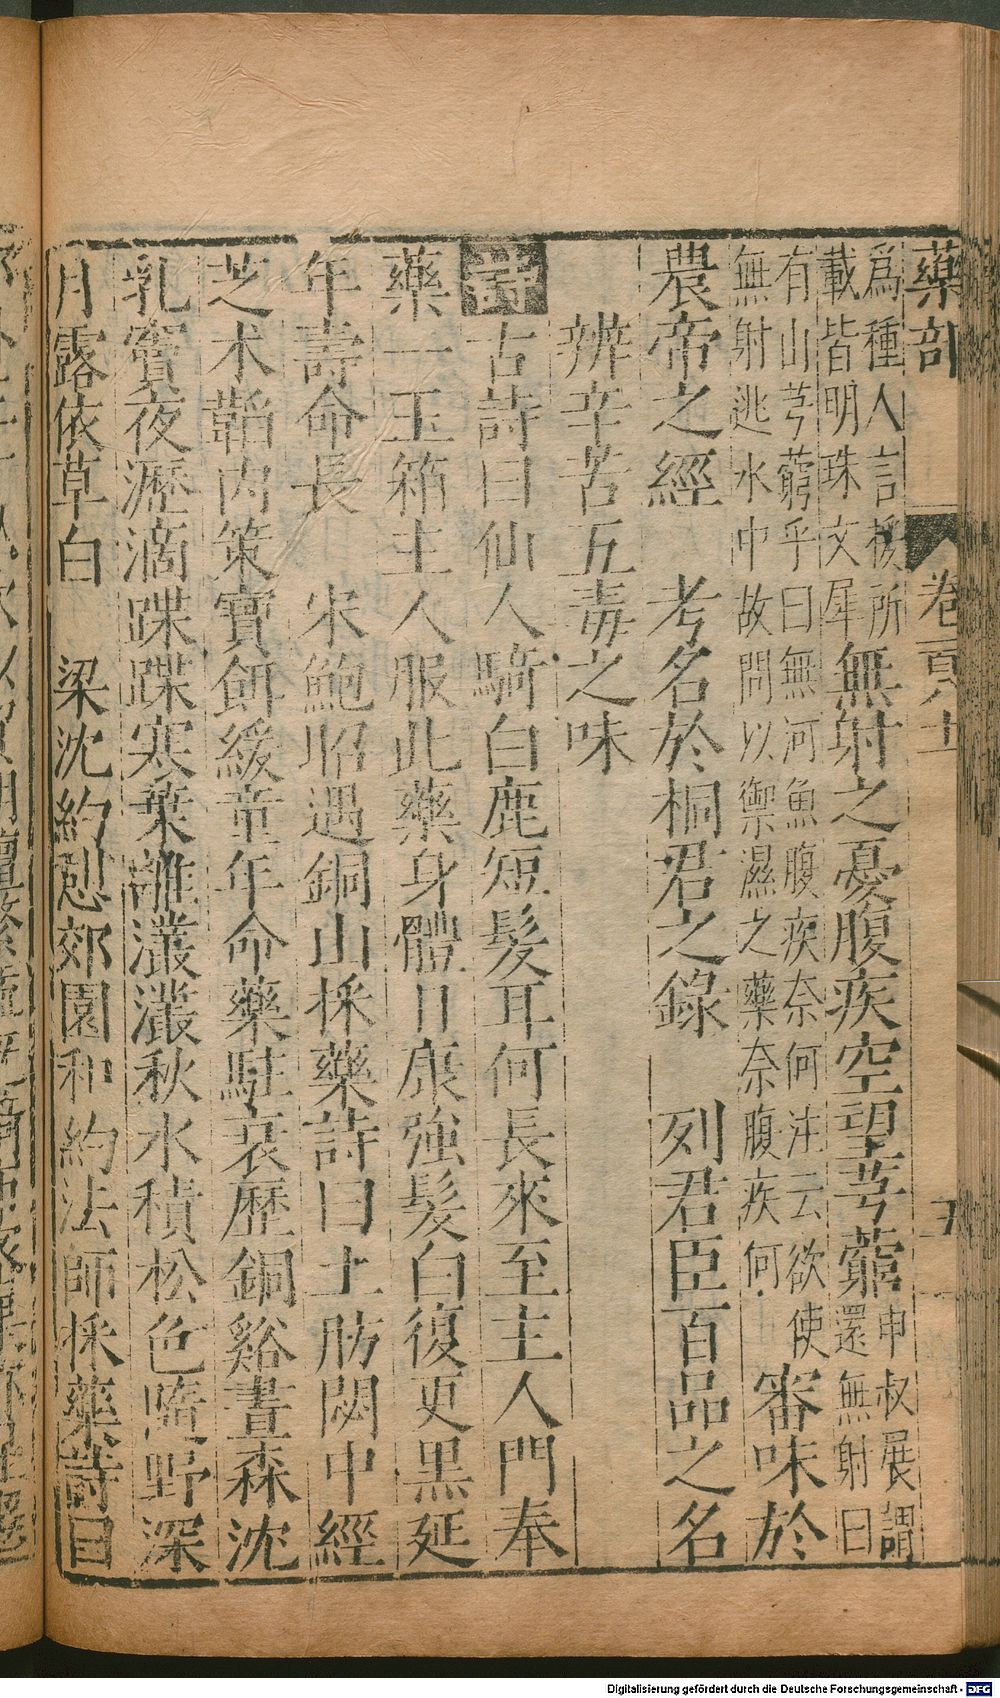 藥部 卷 五
爲種人言援所
載皆明珠文犀無射之憂腹疾空望芎藭申叔展謂
還無射曰
有山芎藭乎曰無河魚腹疾奈何注云欲使
無射逃水中故問以禦濕之藥奈腹疾何審味於
農帝之經 考名於桐君之錄 列君臣百品之名
辨辛苦五毒之味
詩古詩曰仙人騎白鹿短髮耳何長來至主人門奉
藥一玉箱主人服此藥身體日康強髮白復更黒延
年壽命長 宋鮑昭遇銅山採藥詩曰土肪閟中經
芝术韜内策寶餌緩童年命藥駐衰歷銅谿晝森沈
乳竇夜瀝滴蹀蹀寒葉離灇灇秋水積松色隨野深
月露依草白 梁沈約憩郊園和約法師採藥詩曰
Digitalisierung gefördert durch die Deutsche Forschungsgemeinschaft - DFG